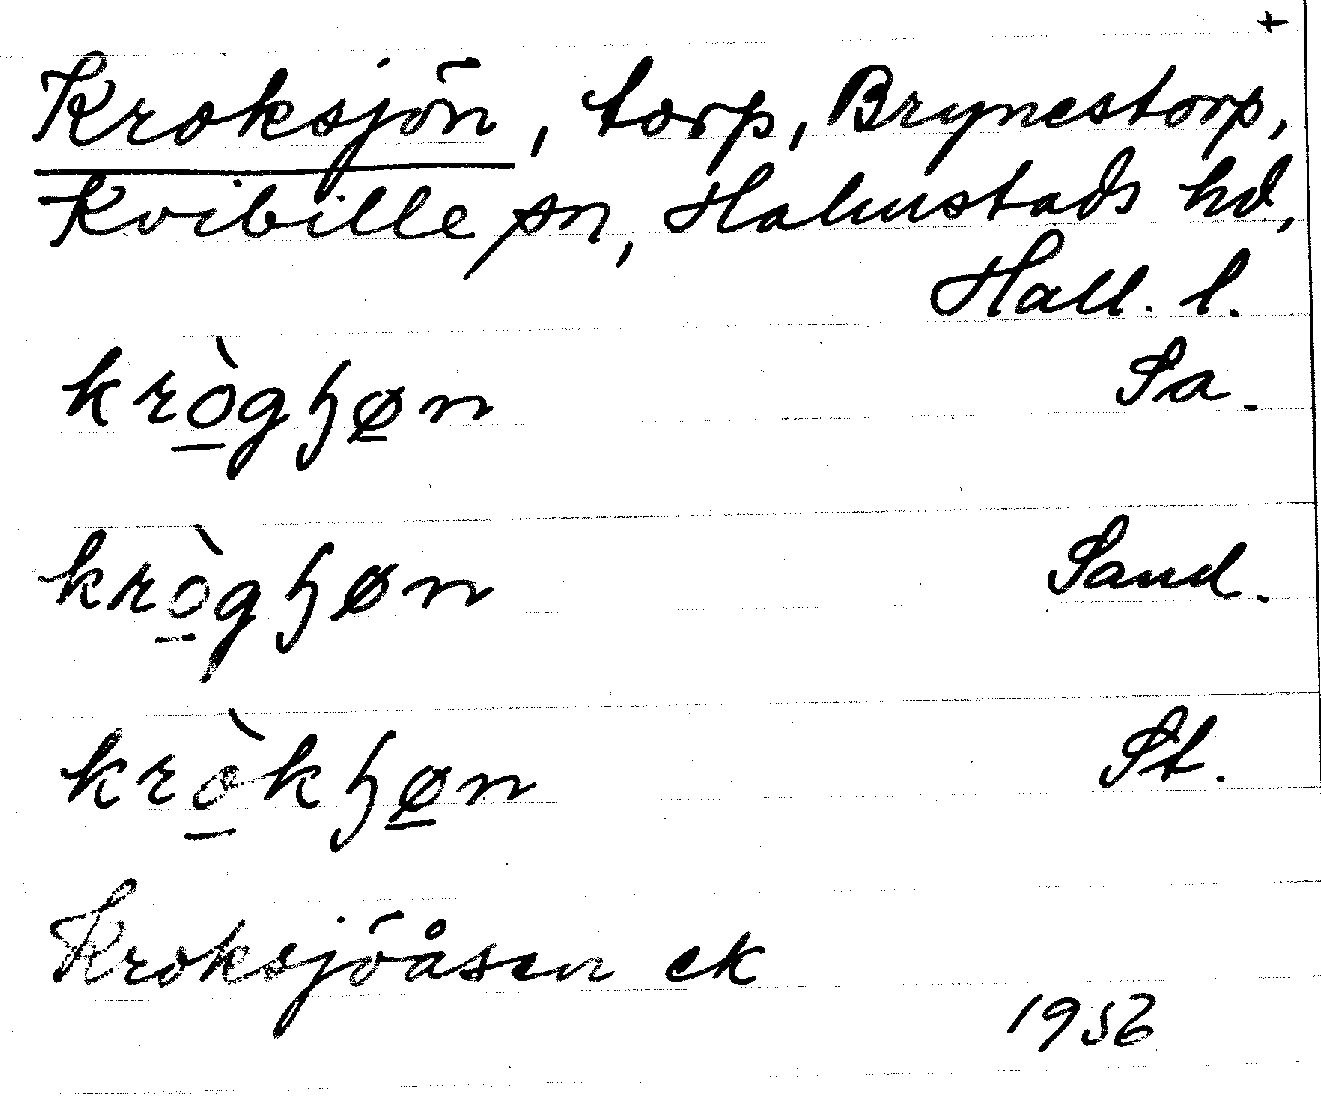 +
Kroksjön, torp, Brynestorp,
Kvibille sn, Halmstads hd,
Hall. l.
krò̲gɧø̲n Sa.
krò̲gɧøn Sand.
krò̲kɧø̲n St.
Kroksjöåsen ek
1956